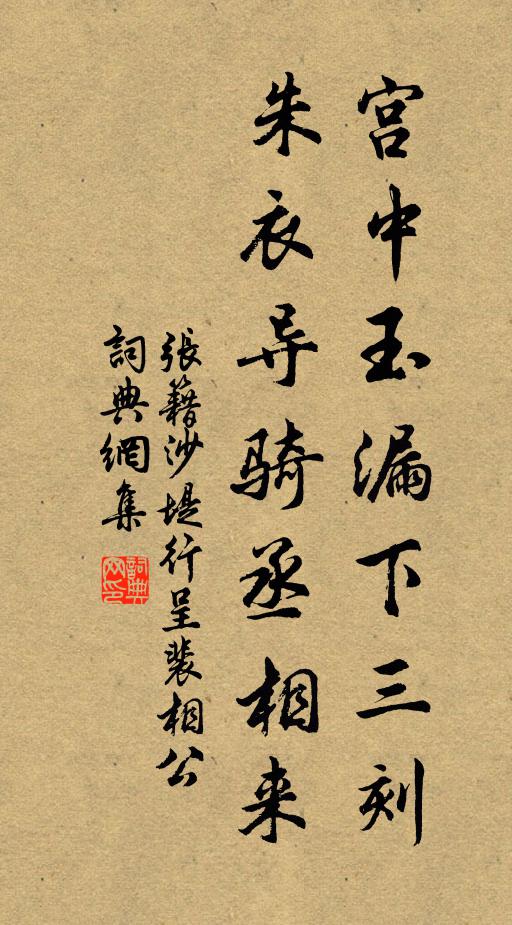 宫中玉漏下三刻
朱衣导骑丞相来
張籍沙堤行呈裴相公
詞典網集
詞典网印